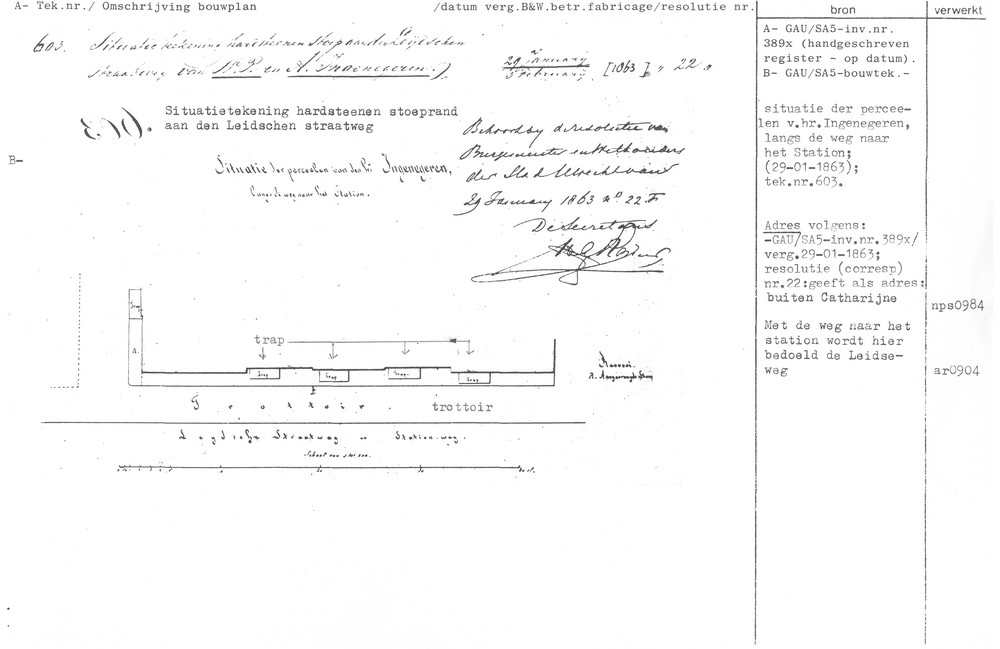 A- Tek.nr./ Omschrijving bouwplan /datum verg.B&W.betr.fabricage/resolutie nr.
603. Situatie tekening hardsteenen stoep aan den Leijdschen
straatweg van A. Ingenegeren.)
29 January
5 February [1863] " 22 "
603. Situatietekening hardsteenen stoeprand
aan den Leidschen straatweg
B-
Situatie der perceelen van den Hr Ingenegeren,
langs de weg naar het Station.
Behoord by de resolutie van
Burgemeester en Wethouders
der Stad Utrecht van
29 January 1863 No. 22 F
De Secretaris
trap
Stoep
A.
Stoep
Stoep
Stoep
Stoep
Trottoir. trottoir
Leydsche Straatweg Stationweg.
bron
A- GAU/SA5-inv.nr.
389x (handgeschreven
register - op datum).
B- GAU/SA5-bouwtek.-
situatie der percee-
len v.hr.Ingenegeren,
langs de weg naar
het Station;
(29-01-1863);
tek.nr.603.
Adres volgens:
-GAU/SA5-inv.nr.389x/
verg.29-01-1863;
resolutie (corresp)
nr.22:geeft als adres:
buiten Catharijne
Met de weg naar het
station wordt hier
bedoeld de Leidse-
weg
verwerkt
nps0984
ar0904